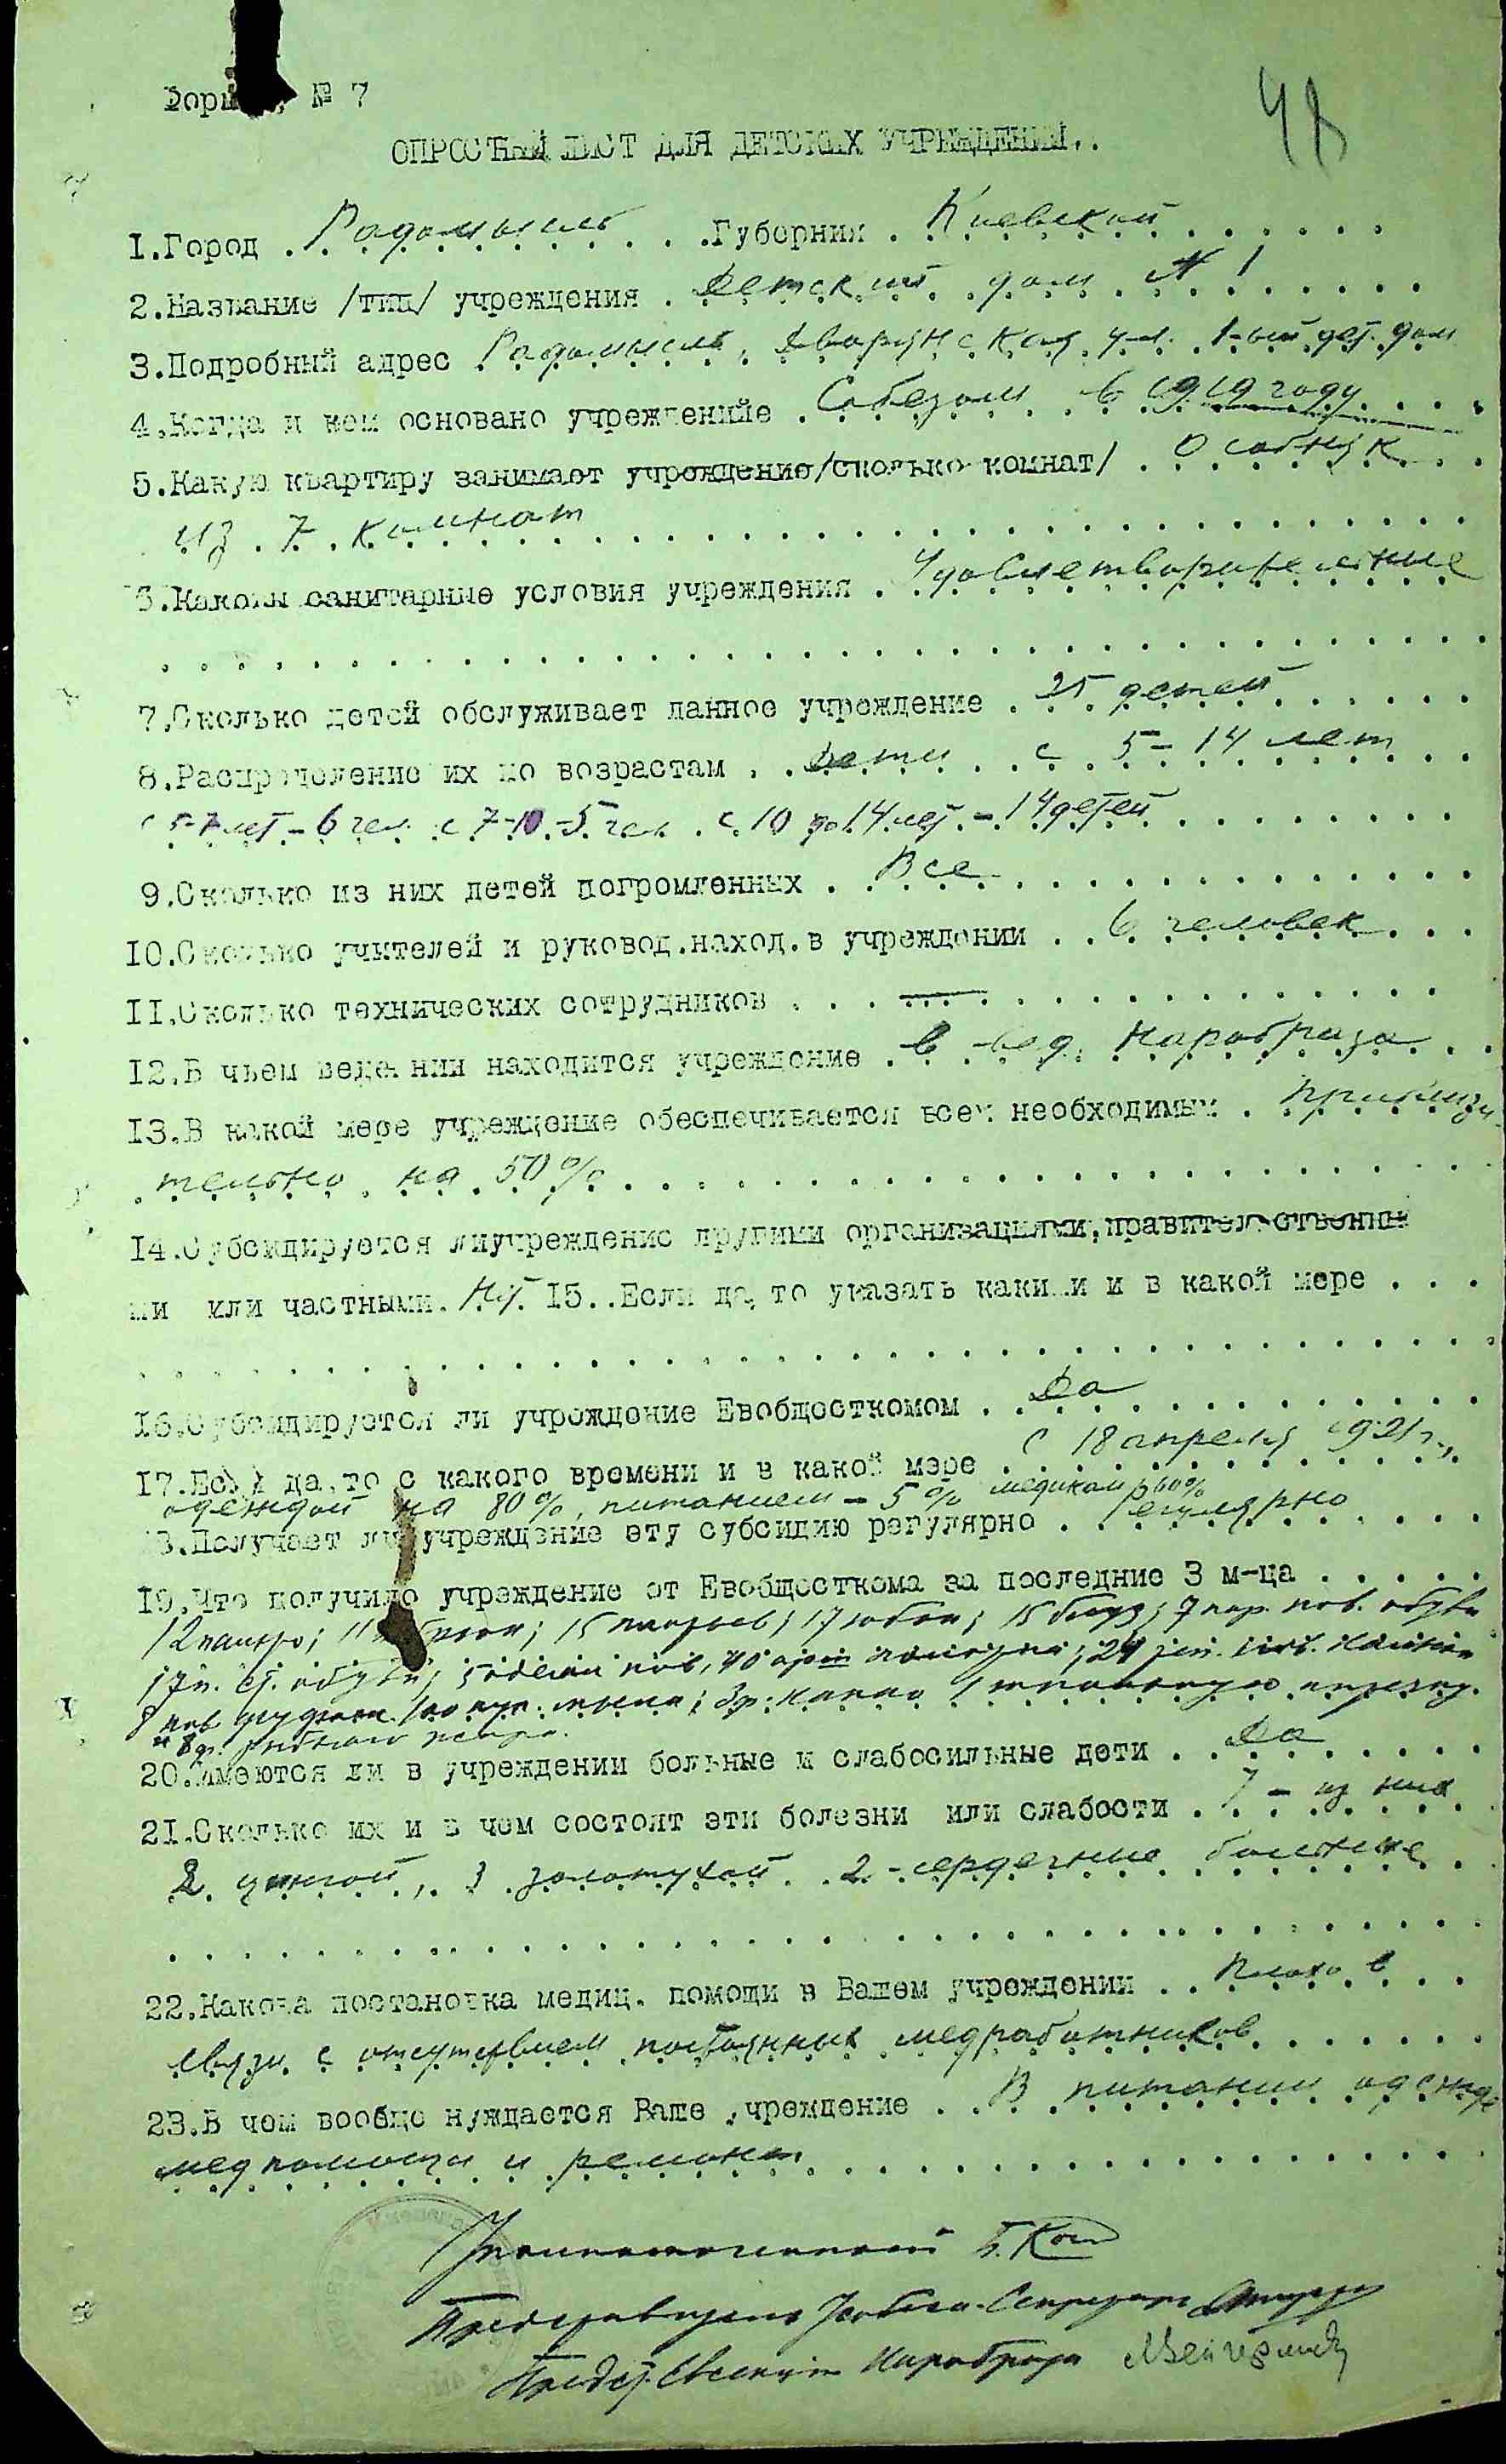 Форма № 7
48
ОПРОСНЫЙ ЛИСТ ДЛЯ ДЕТСКИХ УЧРЕЖДЕНИЙ.
1.Город . Радомысль . . Губерния . Киевской
2.Название /тип/ учреждения . Детский дом № 1
3.Подробный адрес Радомысль, Дворянская ул. 1-ый дет. дом
4.Когда и кем основано учреждениие . Собезом в 1919 году
5.Какую квартиру занимает учреждение/сколько комнат/ . Особняк
из 7 комнат
6.Каковы санитарные условия учреждения . Удовлетворительные
7.Сколько детей обслуживает данное учреждение . 25 детей
8.Распределение их по возрастам . . Дети с 5-14 лет
с 5-7 лет - 6 чел. с 7-10 - 5 чел. с 10 до 14 лет. - 14 детей
9.Сколько из них детей погромленных . Все
10.Сколько учителей и руковод.наход.в учреждении . . 6 человек
11.Сколько технических сотрудников . . . —
12.В чьем ведении находится учреждение . в вед. Наробраза
13.В какой мере учреждение обеспечивается всем необходимым . приблизи-
тельно на 50%
14.Субсидируется лиучреждение другими организациями,правительственны
ми или частными. Нет. 15..Если да, то указать какими и в какой мере . . .
16.Субсидируется ли учреждение Евобщесткомом . Да
17.Если да,то с какого времени и в какой мере . с 18 апреля 1921 г.,
одеждой на 80%, питанием - 5% медикам. 60%
18.Получает ли учреждение эту субсидию регулярно . Регулярно
19.Что получило учреждение от Евобщесткома за последние 3 м-ца . . . . .
12 пальто; 11 брюк; 15 платьев; 17 юбок; 15 блуз; 7 пар. нов. обуви
17 п. ст. обуви; 5 одеял нов, 40 арш полотна; 24
8 мыла; 3 ф. какао
и 8 ф. рыбьего жира.
20.Имеются ли в учреждении больные и слабосильные дети . . Да
21.Сколько их и в чем состоят эти болезни или слабости . 7 - из них
2 цингой, 3 золотухой 2 - сердечные больные
22.Какова постановка медиц. помощи в Вашем учреждении . . Плохо в
связи с отсутствием постоянных медработников
23.В чем вообще нуждается Ваше учреждение . . В питании одежде
медпомощи и ремонт
Уполномоченный
Секретарь
Предст. Евсекции Наробраза